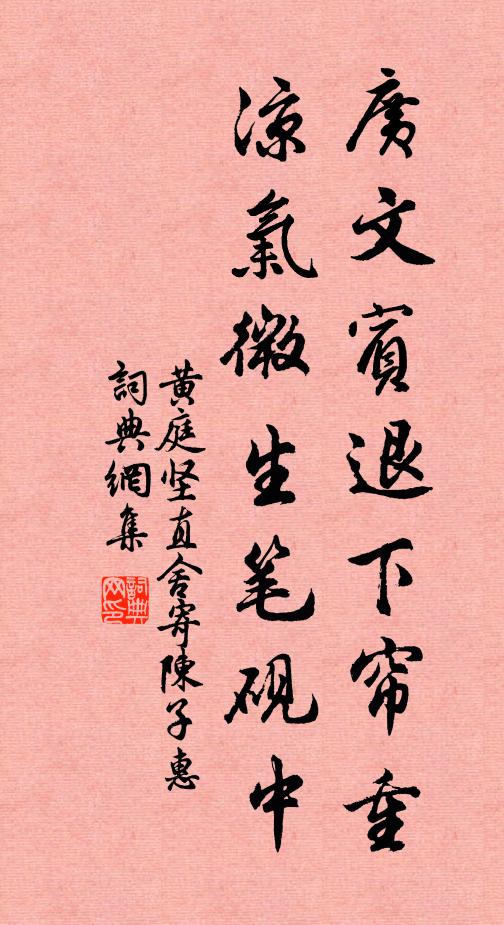 廣文賓退下帘重
涼氣微生笔硯中
黄庭坚直舍寄陳子惠
詞典網集
詞典
网印